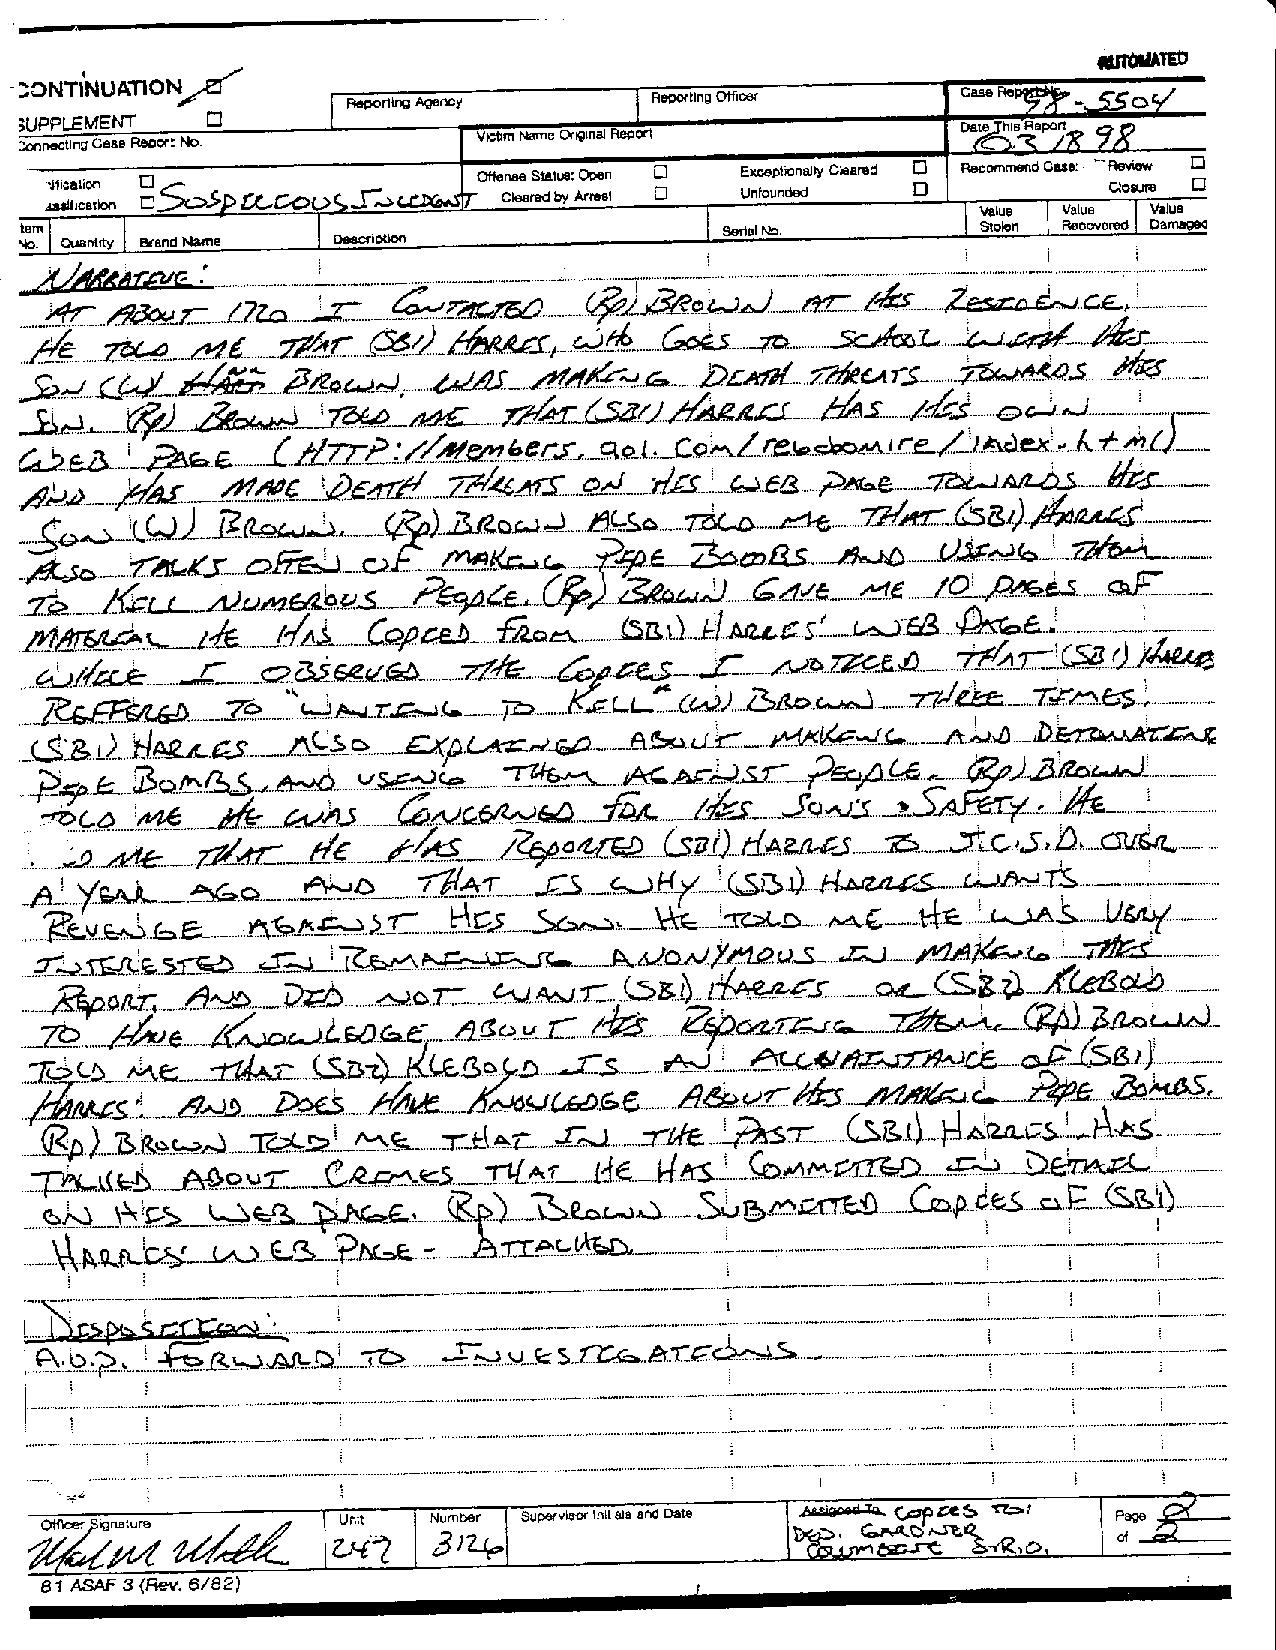 AUTOMATED
CONTINUATION
SUPPLEMENT
Connecting Case Report No.
Reporting Agency
Reporting Officer
Case Report No. 98-5504
Victim Name Original Report
Date This Report 03 18 98
ification
assification
SUSPICIOUS INCIDENT
Offense Status: Open
Cleared by Arrest
Exceptionally Cleared
Unfounded
Recommend Case: Review
Closure
Item No.
Quantity
Brand Name
Description
Serial No.
Value Stolen
Value Recovered
Value Damaged
NARRATIVE:
AT ABOUT 1720 I CONTACTED (RP) BROWN AT HIS RESIDENCE.
HE TOLD ME THAT (SB1) HARRIS, WHO GOES TO SCHOOL WITH HIS
SON (W) BROWN, WAS MAKING DEATH THREATS TOWARDS HIS
SON. (RP) BROWN TOLD ME THAT (SB1) HARRIS HAS HIS OWN
WEB PAGE (HTTP://Members.aol.Com/rebdomire/index.html)
AND HAS MADE DEATH THREATS ON HIS WEB PAGE TOWARDS HIS
SON (W) BROWN. (RP) BROWN ALSO TOLD ME THAT (SB1) HARRIS
ALSO TALKS OFTEN OF MAKING PIPE BOMBS AND USING THEM
TO KILL NUMEROUS PEOPLE. (RP) BROWN GAVE ME 10 PAGES OF
MATERIAL HE HAS COPIED FROM (SB1) HARRIS' WEB PAGE.
WHILE I OBSERVED THE COPIES I NOTICED THAT (SB1) HARRIS
REFFERED TO "WANTING TO KILL" (W) BROWN THREE TIMES.
(SB1) HARRIS ALSO EXPLAINED ABOUT MAKING AND DETONATING
PIPE BOMBS, AND USING THEM AGAINST PEOPLE. (RP) BROWN
TOLD ME HE WAS CONCERNED FOR HIS SON'S SAFETY. HE
ME THAT HE HAS REPORTED (SB1) HARRIS TO J.C.S.D. OVER
A YEAR AGO AND THAT IS WHY (SB1) HARRIS WANTS
REVENGE AGAINST HIS SON. HE TOLD ME HE WAS VERY
INTERESTED IN REMAINING ANONYMOUS IN MAKING THIS
REPORT, AND DID NOT WANT (SB1) HARRIS OR (SB2) KLEBOLD
TO HAVE KNOWLEDGE ABOUT HIS REPORTING THEM. (RP) BROWN
TOLD ME THAT (SB2) KLEBOLD IS AN ACCNAINTANCE OF (SB1)
HARRIS' AND DOES HAVE KNOWLEDGE ABOUT HIS MAKING PIPE BOMBS.
(RP) BROWN TOLD ME THAT IN THE PAST (SB1) HARRIS HAS
TALKED ABOUT CRIMES THAT HE HAS COMMITTED IN DETAIL
ON HIS WEB PAGE. (RP) BROWN SUBMITTED COPIES OF (SB1)
HARRIS' WEB PAGE - ATTACHED.
DISPOSITION:
A.O.D. FORWARD TO INVESTIGATIONS
Officer Signature
Unit 247
Number 3126
Supervisor Initials and Date
Assigned To COPIES TO:
DEP. GARDNER
COLUMBINE S.R.O.
Page 2
of 2
81 ASAF 3 (Rev. 6/82)